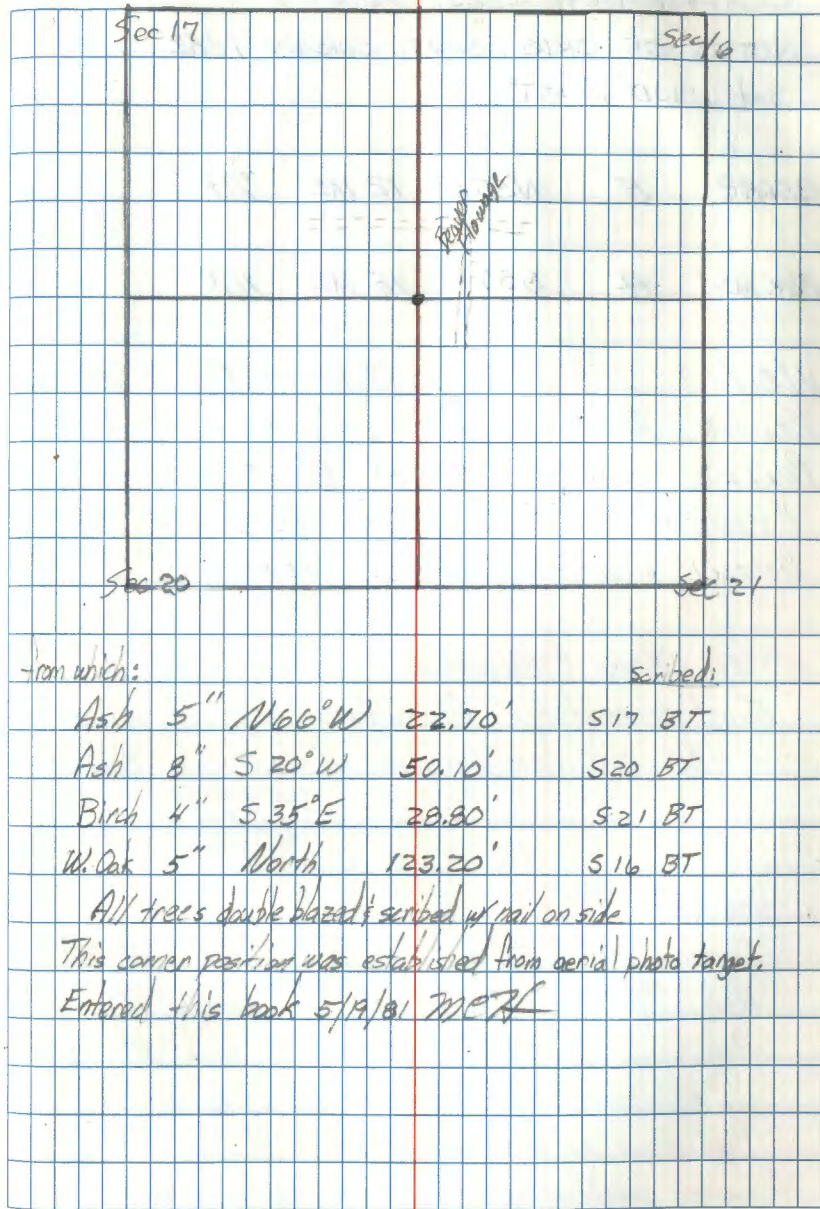 Sec 17 Sec 16
Beaver
Flowage
Sec 20 Sec 21
from which: scribed:
Ash 5" N66°W 22.70' S17 BT
Ash 8" S20°W 50.10' S20 BT
Birch 4" S35°E 28.80' S21 BT
W. Oak 5" North 123.20' S16 BT
All trees double blazed & scribed w/ nail on side
This corner position was established from aerial photo target.
Entered this book 5/19/81